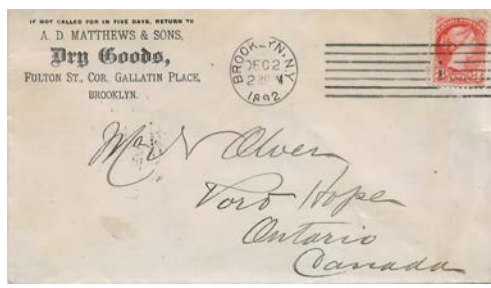 IF NOT CALLED FOR IN FIVE DAYS, RETURN TO
A. D. MATTHEWS & SONS,
Dry Goods,
FULTON ST., COR. GALLATIN PLACE,
BROOKLYN.
BROOKLYN, N.Y.
DEC 2
1892
Mr N Olver
Port Hope
Ontario
Canada